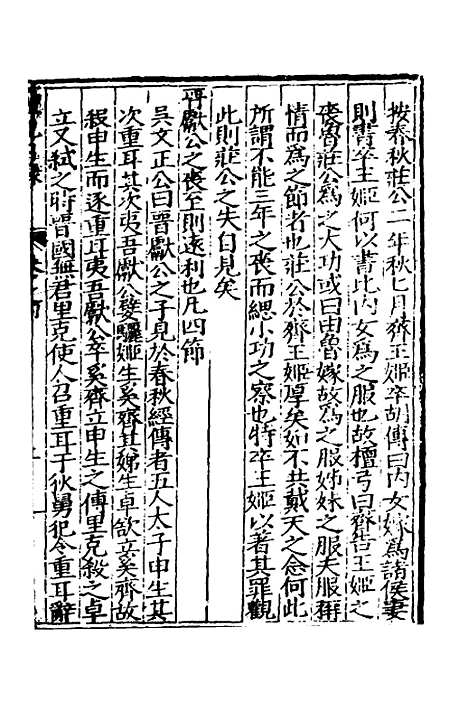 按春秋莊公二年秋七月齊王姬卒胡傳曰內女嫁爲諸侯妻
則書卒王姬何以書比內女爲之服也故檀弓曰齊告王姬之
喪魯莊公爲之大功或曰由魯嫁故爲之服姊妹之服夫服稱
情而爲之節者也莊公於齊王姬厚矣如不共戴天之忿何此
所謂不能三年之喪而緦小功之察也特卒王姬以著其罪觀
此則莊公之失自見矣
晉獻公之喪至則遠利也凡四節
吳文正公曰晉獻公之子見於春秋經傳者五人太子申生其
次重耳其次夷吾獻公嬖驪姬生奚齊其娣生卓欲立奚齊故
殺申生而逐重耳夷吾獻公卒奚齊立申生之傳里克殺之卓
立又弒之時晉國無君里克使人召重耳于狄舅犯令重耳辭